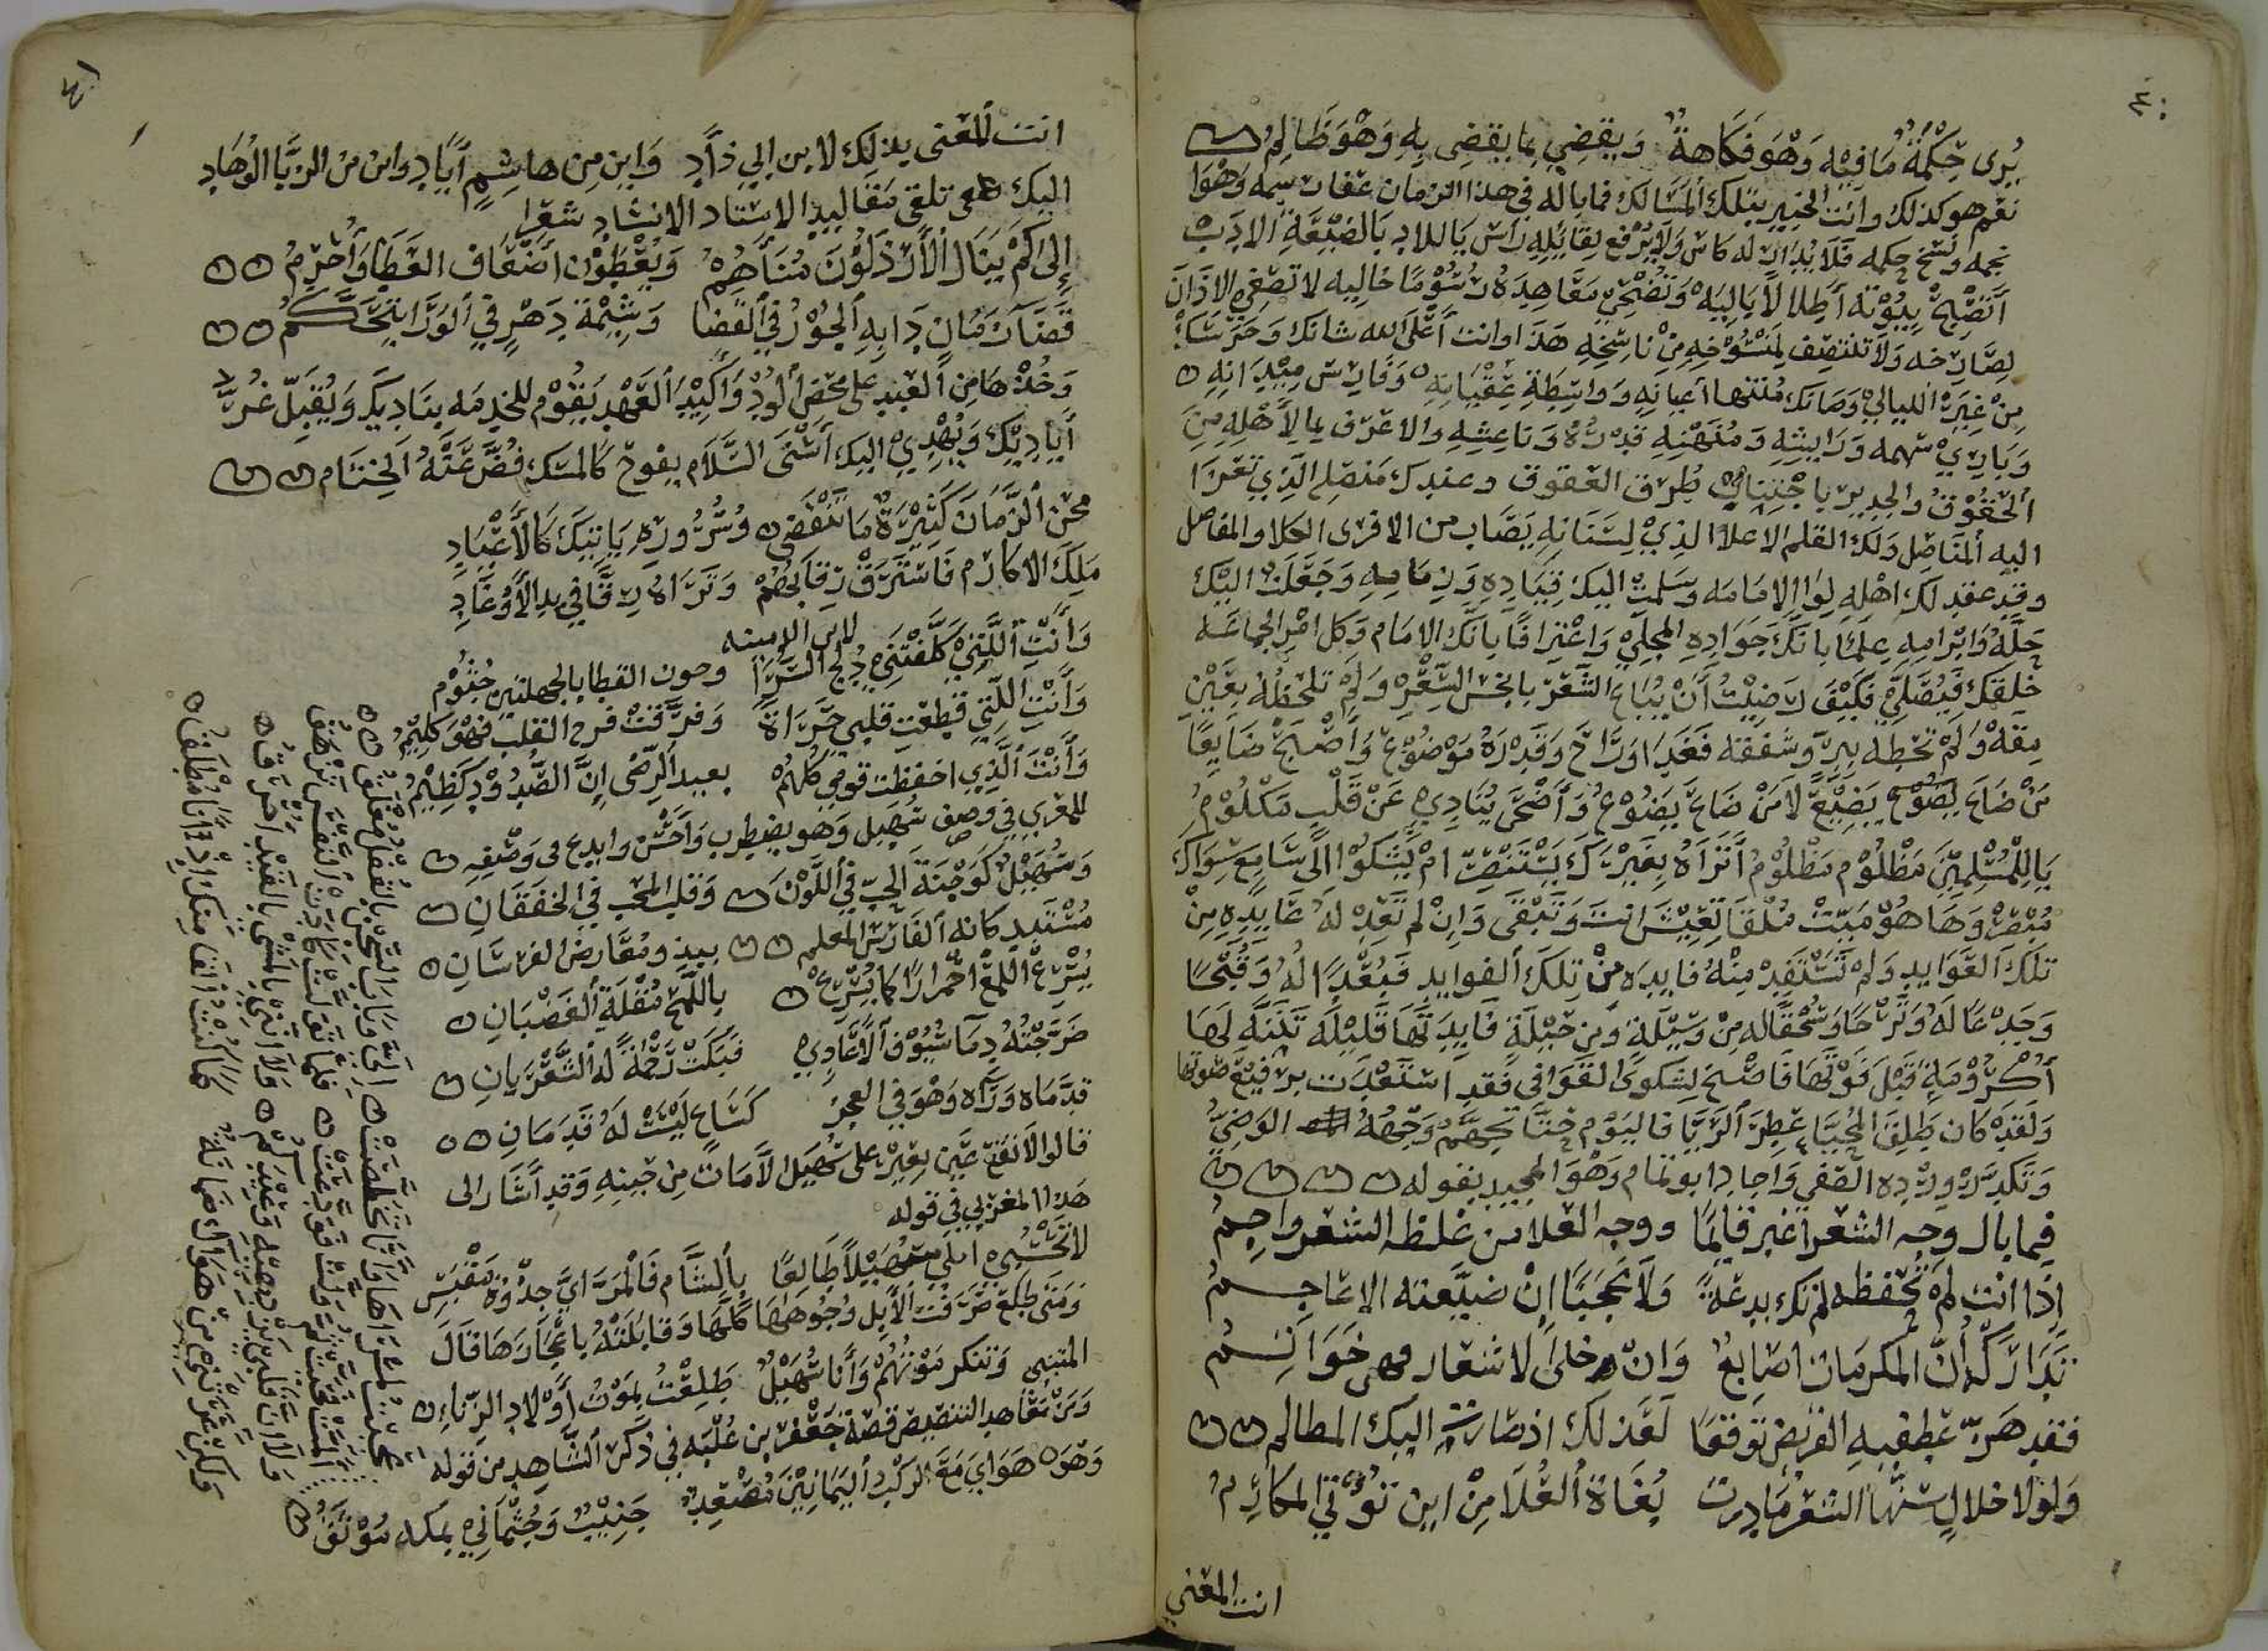 ٤٠
يُرى حِكْمَةً مَا فيه وَهْوَ فَكَاهةٌ وَيقضِي بما يقضِى بِهِ وَهْوَ ظَالِمُ
نعم هو كذلك وانت الخبير بتلك المسالك فما باله في هذا الزمان عفات سمه وَهْوَا
نجمه ونسخ حكمه فلا يدار له كاس ولا يرفع لقايله راس يا للادب يا لضيعة الادب
أتصبح بيوته أطلالا باليه وتضحى معاهده رسوما خاليه لا تصغى الاذان
لصارخه ولا تنتصف لمنسوخه من ناسخه هذا وانت أعلى الله شانك وحرسك
من غير الليالي وصانك منتها أعيانه وواسطة عقيانه وفارس ميدانه
وباري سهمه ورايشه ومنهنه قدره وناعشه والاعرف بما لأهله من
الحقوق والجدير باجتناب طرق العقوق وعندك منصلح الذي تعزا
اليه المناصل ولك القلم الاعلا الذي لسنانه يصاب من الافرى الكلا والمفاصل
وقد عقد لك اهله لوا الامامه وسلمت اليك قياده وزمامه وجعلت اليك
حله وابرامه علما بانك جواده المجلي واعترافا بانك الامام وكل امر الجماعه
خلفك فيصلي فكيف رضيت أن يباع الشعر بابخس السعر ولم تلحظه بعين
مقه ولم تحطه ببر وشفقه فغدا وراح وقدره موضوع وأصبح ضايعا
من ضاع يضيع لا من ضاع يضوع وأضحى ينادي عن قلب مكلوم
يا للمسلمين مظلوم مظلوم أتراه بغيرك يستنصر ام يشكوا الى سامع سواك
مبصر وها هو ميت ملقا لعيش انت وتبقى وان لم تعد له عايده من
تلك العوايد ولم تستفد منه فايده من تلك الفوايد فبعدا له وقبحا
وجدعا له وترحا وسحقا له من وسيلة ومن حبيلة فايدتها قليله تنبه لها
أكرومة قبل فوتها فاصخ لشكوى القوافى فقد استعدت برفيع صوتها
ولقد كان طلق المحيا عطر الريا فاليوم حتا تجهم وجهه الوضي
وتكدر ورده الصفي واجاد ابو تمام وهو المجيد بقوله
فما بال وجه الشعر اغبر قاتما ووجه العلا من غلظ الشعر واجم
اذا انت لم تحفظه لم تك بدعة ولا عجبا ان ضيعته الاعاجم
تدارك أن المكرمات اصابع وان حلى الاشعار فهى خواتم
فقد هز عطفيه القريض توقعا لعدلك اذ صارت اليك المظالم
ولولا خلال سنها الشعر ما درت بغاة العلا من اين تؤتى المكارم
انت المعنى
٤١
انت المعنى بذلك لابن ابي دأد وابن من هاشم أباد وابن من الربا الوهاد
اليك تلقى مقاليد الاستاد الانشاد شعرا
إلى كم ينال الأرذلون مناهم ويعطون أضعاف العطا وأحرم
قضا زمان دابه الجور في القضا وشيمة دهر في الورا يتحكم
وخذها من العبد على محض الود وأكيد العهد يقوم للخدمه بناديك ويقبل غر
أياديك ويهدي اليك أسنى السلام يفوح كالمسك فض عنه الختام
محن الزمان كثيرة ما تنقضى وسروره ياتيك كالأعياد
ملك الاكارم فاسترق رقابهم وتراه رقا في يد الأوغاد
لابن الدمينه
وأنت اللتي كلفتني دلج السرا وجون القطا بالجهلتين جثوم
وأنت اللتي قطعت قلبي حزازة وفرقت قرح القلب فهو كليم
وأنت الذي احفظت قومي كلهم بعيد الرضى ان الصدود كظيم
للمعري في وصف سهيل وهو يضطرب وأحسن وابدع في وصفه
وسهيل كوجنة الحب في اللون وقلب المحب في الخفقان
مستبد كانه الفارس المعلم يبدو معارض الفرسان
يسرع اللمع احمرارا كما يسرع باللمح مقلة الغضبان
ضرجته دما سيوف الأعادي فبكت رحمة له الشعريان
قدماه وراه وهو في العجز كساع ليست له قدمان
قالوا لا تقع عين بعير على سهيل الا مات من حينه وقد أشار الى
هذا المغربي في قوله
لا تحسبي ابلي سهيلا طالعا بالشام فالمرا اي جذوة مقبس
ومتى طلع صرفت الأبل وجوهها كلها وقابلته باعجازها قال
المتنبي وتنكر موتهم وأنا سهيل طلعت بموت أولاد الزناء
ومن معاهد التنصيص قصة جعفر بن علبه في ذكر الشاهد من قوله
وهو هواي مع الركب اليمانين مصعد جنيب وجثماني بمكه موثق
عجبت لمسراها وأنا تخلصت الي وباب السجن بالقفل مغلق
المت فحيت ثم قامت فودعت فلما تولت كادت النفس تزهق
ولا ان قلبي يزدهيه وعيدكم ولا أنني بالمشي بالقيد اخرق
ولكن عرتني من هواك ضمانة كما كنت القا منك اذ انا مطلق